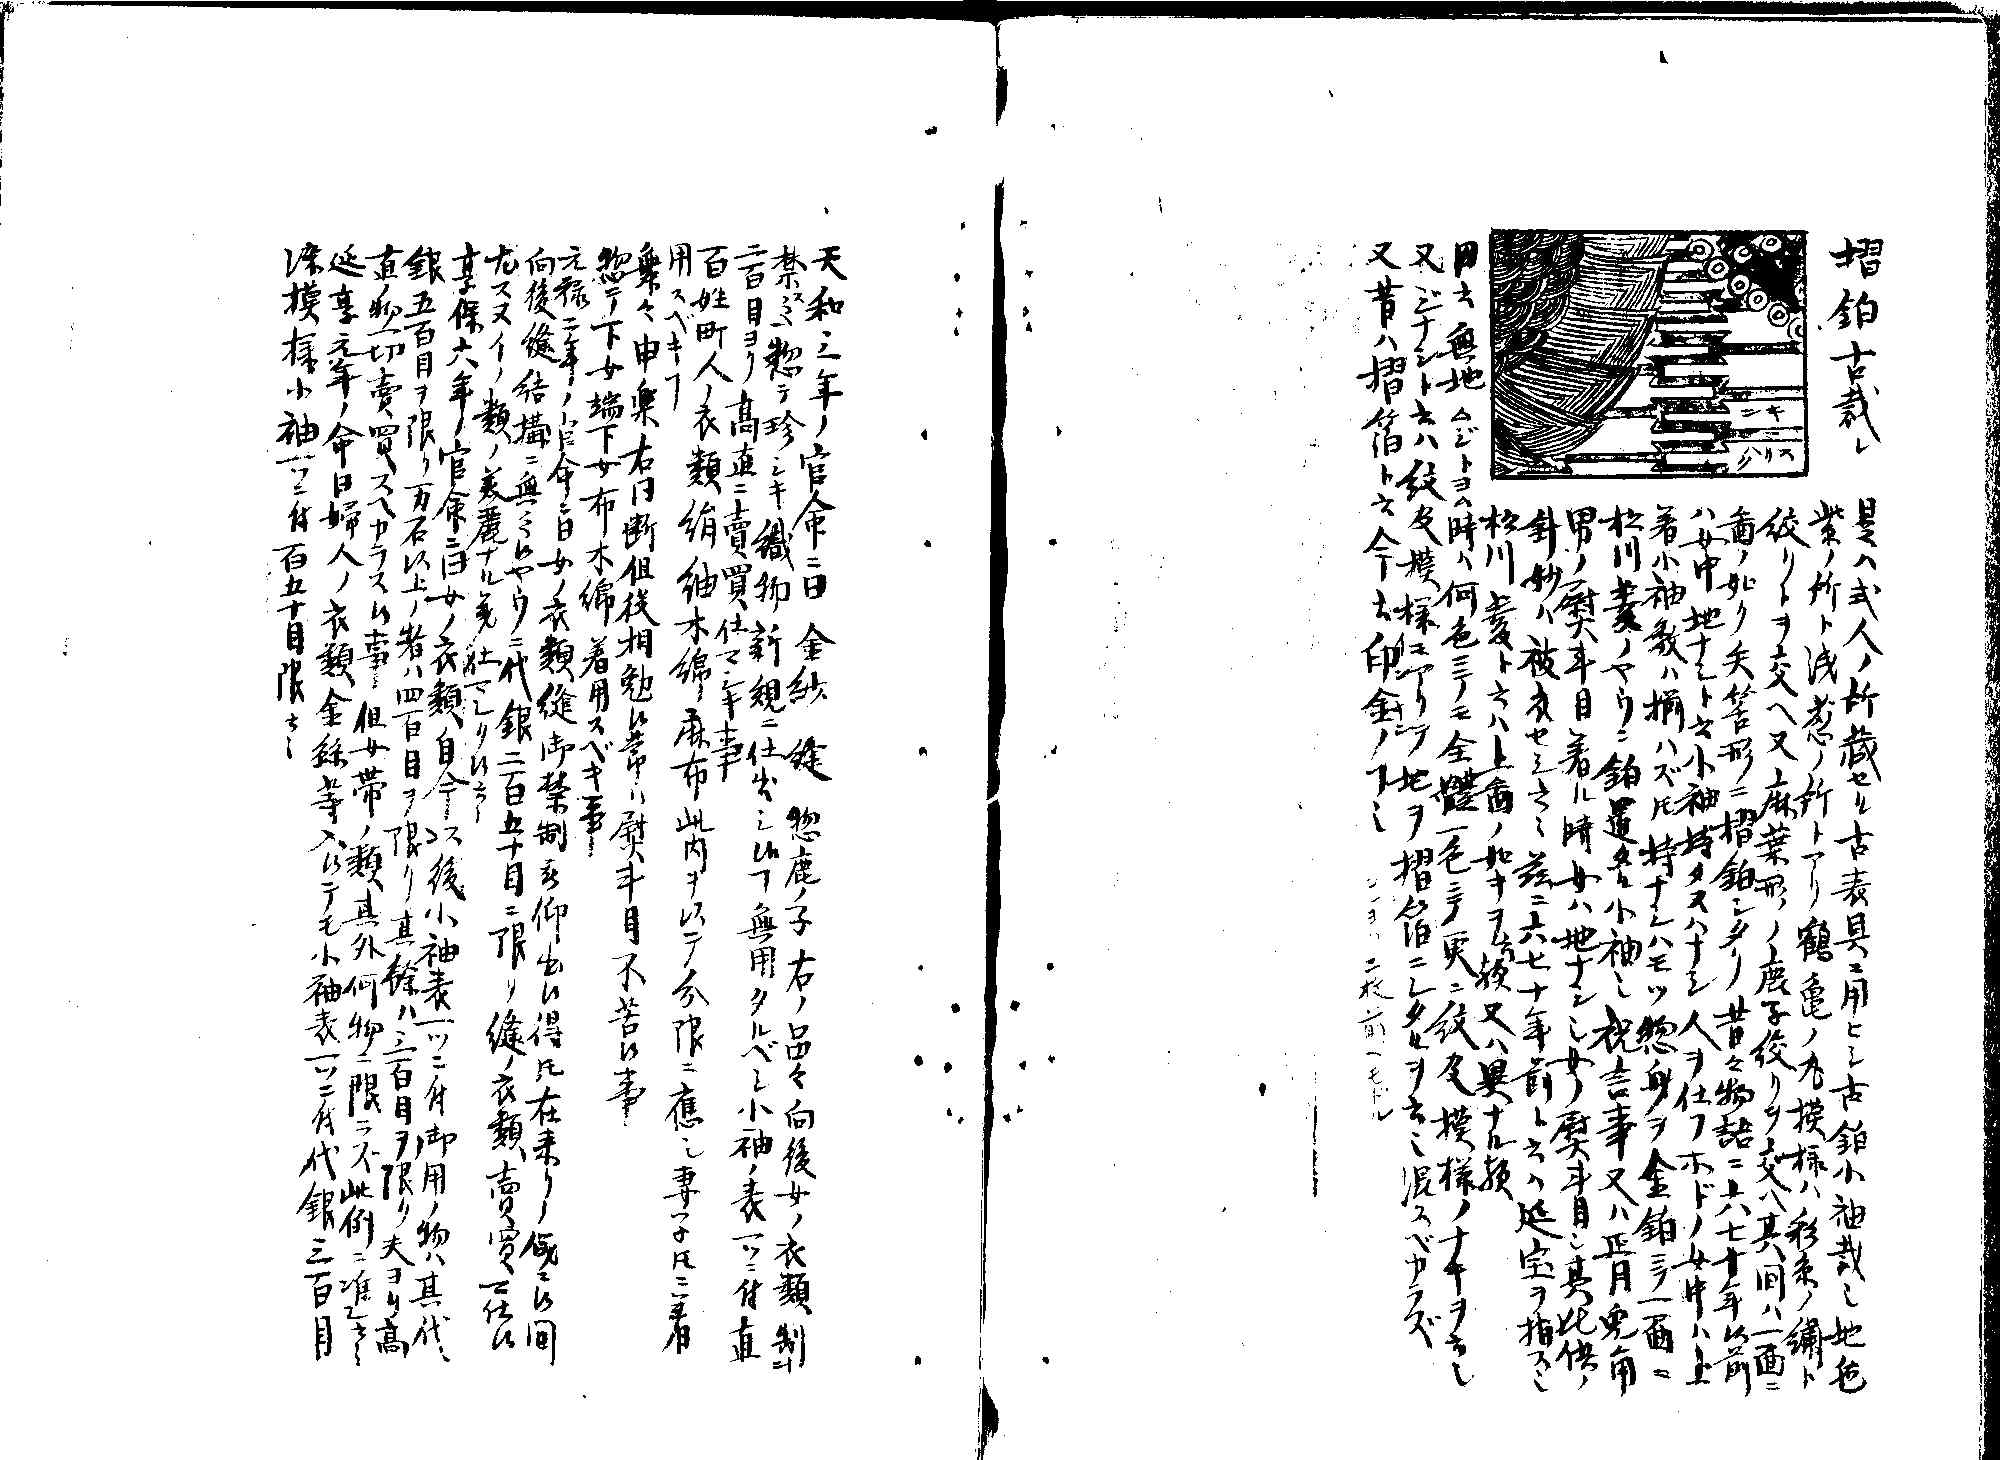 摺鉑古裁レ
キニ
スリハク
是ハ或人ノ所蔵セル古表具ニ用ヒシ古鉑小袖裁レ地色
紫ノ所ト浅葱ノ所トアリ鶴亀ノ丸模様ハ彩糸ノ繍ト
絞リトヲ交ヘ又麻葉形ノ鹿子絞リヲ交ヘ其間ハ一面ニ
昔々物語ニ六七十年以前
ハ女中地ナシト云小袖持タヌハナシ人ヲ仕フホドノ女中ハ上
着小袖数ハ揃ハズ氏持ナシハモツ惣身ヲ金鉑ニテ一面ニ
松川菱ノヤウニ鉑置タル小袖也祝言事又ハ正月兎角
男ノ熨斗目着ル時女ハ地ナシ也女ノ熨斗目也其比供ノ
針妙ハ被衣セシ云々茲ニ六七十年前ト云ハ延宝ヲ指ス也
松川菱ト云ハ上図ノ如キヲ云歟又ハ異ナル歟
因云無地ムジトヨム時ハ何色ニテモ全體一色ニテ更ニ紋及模様ノナキヲ云也
又ジナシト云ハ紋及模様ニアリテ地ヲ摺箔ニシタルヲ云也混スベカラズ
又昔ハ摺箔ト云今云印金ノフ也
天和三年ノ官命ニ曰 金紗 縫 惣鹿ノ子右ノ品々向後女ノ衣類制
禁ス之惣テ珍シキ織物新規ニ仕出シ候フ無用タルベシ小袖ノ表一ツニ付直
二百目ヨリ高直ニ賣買仕マジキ事
百姓町人ノ衣類絹紬木綿麻布此内ヲ以テ分限ニ應シ妻子氏ニ着
用スベキフ
舞々申楽右同断但役相勉候節ハ熨斗目不苦候事
惣テ下女端下女布木綿着用スベキ事
元禄二年ノ官命ニ曰女ノ衣類縫御禁制被仰出候得氏在来リノ儀ニ候間
向後縫結構ニ無之候ヤウニ代銀二百五十目ニ限リ縫ノ衣類賣買可仕候
享保六年ノ官命ニ曰女ノ衣類自今以後小袖表一ツニ付御用ノ物ハ其代
銀五百目ヲ限リ万石以上ノ者ハ四百目ヲ限リ其餘ハ三百目ヲ限リ夫ヨリ高
直ノ物一切賣買スヘカラス候事但女帯ノ類其外何物ニ限ラズ此例ニ准
延享元年ノ命曰婦人ノ衣類金絲等入候ニテモ小袖表一ツニ付代銀三百目
染模様小袖一ツニ付百五十目限云々